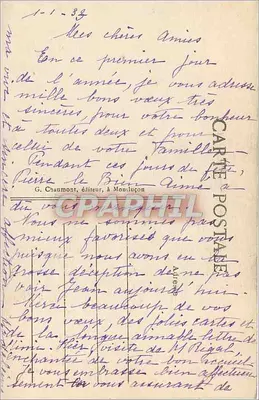 1-1-32
Mes chères Amies
En ce premier jour
de l'année, je vous adresse
mille bons vœux très
sincères, pour votre bonheur
à toutes deux et pour
celui de votre famille
Pendant ces jours de fête,
Pierre le Bien Aimé a
G. Chaumont, éditeur, à Montluçon
dû vous
Nous ne sommes pas
mieux favorisés que vous
puisque nous avons eu la
grosse déception de ne pas
voir Jean aujourd'hui
Merci beaucoup de vos
bons vœux, des jolies cartes et
de la longue aimable lettre de
visite de
enchantée de votre bon accueil
Je vous embrasse bien affectueu
sement vous assurant de
ma vive et
CARTE POSTALE
Adresse
CPAPHIL